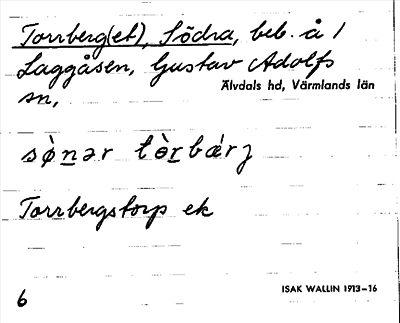 Torrberg(et), Södra, beb. å 1
Laggåsen, Gustav Adolfs
sn,
Älvdals hd, Värmlands län
sø̀n̲ər tòr̲bǽrj
Torrbergstorp ek
6
ISAK WALLIN 1913–16